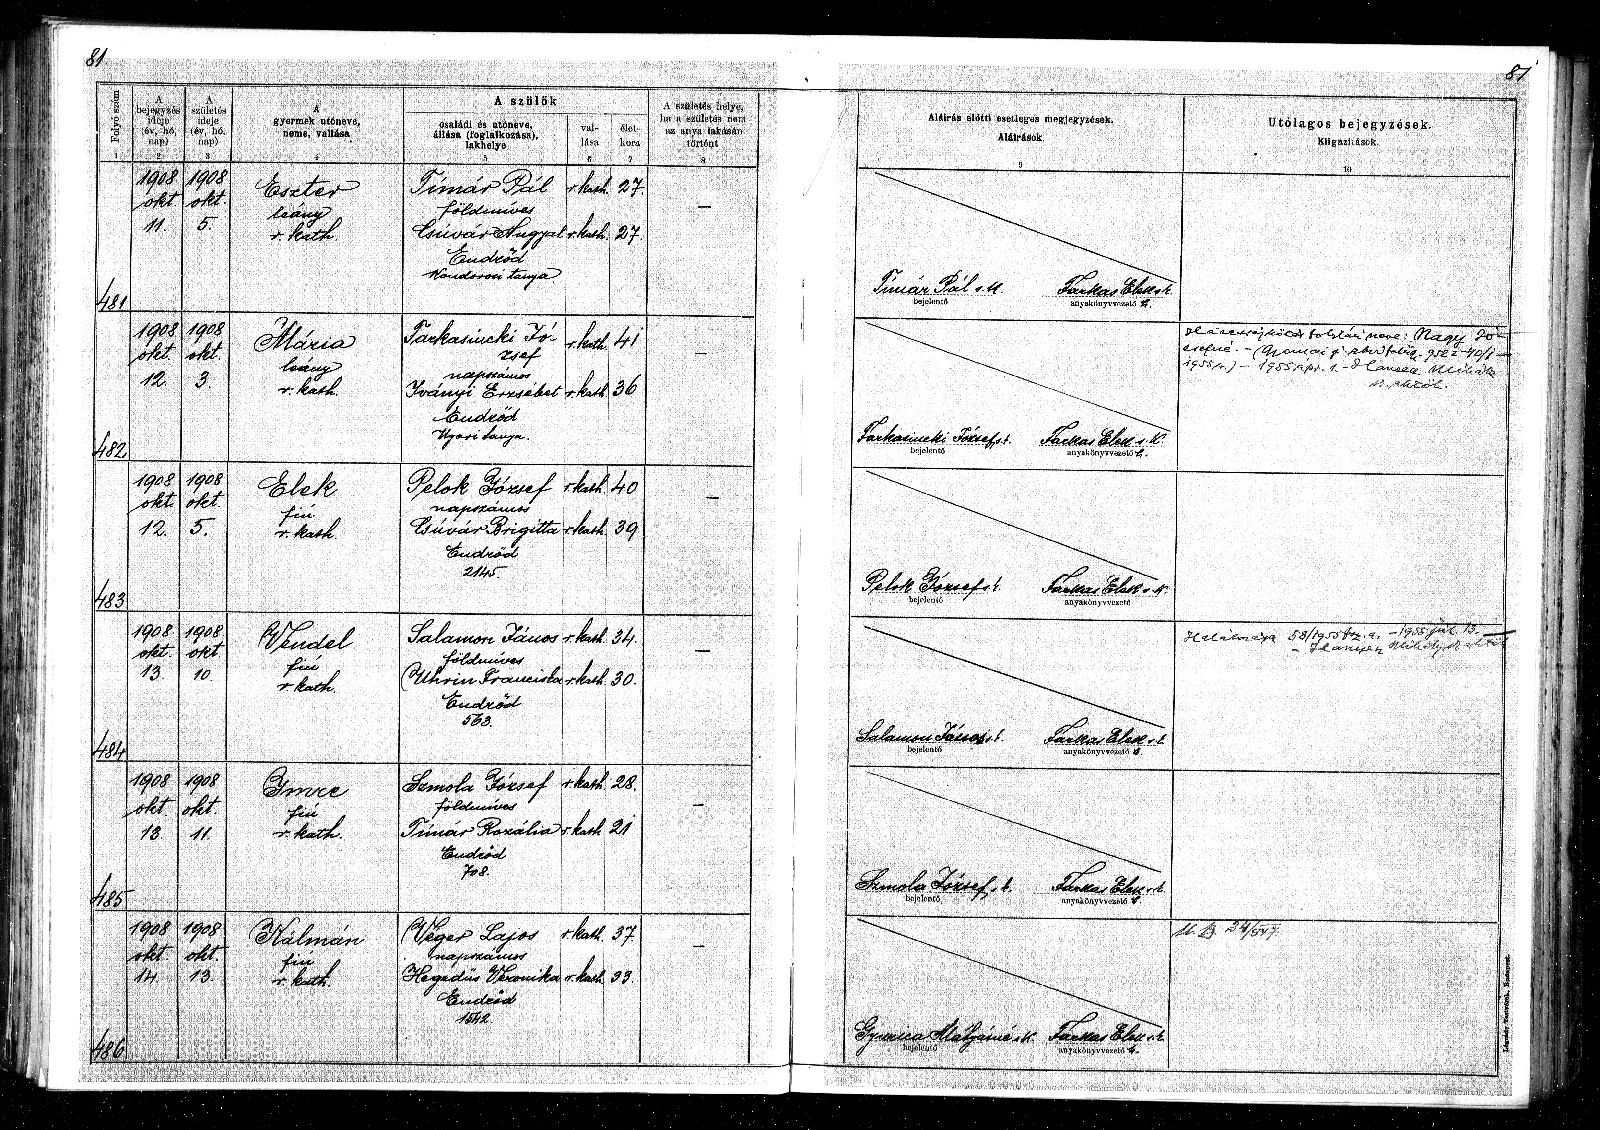 81
81
Folyó szám
A bejegyzés ideje (év, hó, nap)
A születés ideje (év, hó, nap)
A gyermek utóneve, neme, vallása
A szülők
családi és utóneve, állása (foglalkozása), lakhelye
val-
lása
élet-
kora
A születés helye, ha a születés nem az anya lakásán történt
Aláírás előtti esetleges megjegyzések.
Aláírások.
Utólagos bejegyzések.
Kiigazítások.
1 2 3 4 5 6 7 8 9 10
1908 1908 Eszter Tímár Pál r. kath. 27.
okt. okt. leány földmíves
11. 5. r. kath. Csúvár Angyal r. kath. 27.
Endrőd
Kondorosi tanya
481
Tímár Pál s. k. Farkas Elek s. k.
bejelentő anyakönyvvezető
1908 1908 Mária Farkasincki Jó- r. kath. 41
okt. okt. leány zsef
napszámos
12. 3. r. kath. Iványi Erzsébet r. kath. 36
Endrőd
tanya.
482
Farkasincki József s. k. Farkas Elek s. k.
bejelentő anyakönyvvezető
neve: Nagy Jó-
zsefné.
1955
1908 1908 Elek Pelok József r. kath. 40
okt. okt. fiú napszámos
12. 5. r. kath. Csúvár Brigitta r. kath. 39
Endrőd
2145.
483
Pelok József s. k. Farkas Elek s. k.
bejelentő anyakönyvvezető
1908 1908 Vendel Salamon János r. kath. 34.
okt. okt. fiú földmíves
13. 10. r. kath. Uhrin Franciska r. kath. 30.
Endrőd
563.
484
Salamon János s. k. Farkas Elek s. k.
bejelentő anyakönyvvezető
Halálozása 53/1955
1908 1908 Imre Szmola József r. kath. 28.
okt. okt. fiú földmíves
13. 11. r. kath. Tímár Rozália r. kath. 21
Endrőd
708.
485
Szmola József s. k. Farkas Elek s. k.
bejelentő anyakönyvvezető
1908 1908 Kálmán Véger Lajos r. kath. 37
okt. okt. fiú napszámos
14. 13. r. kath. Hegedűs Veronika r. kath. 33.
Endrőd
1542.
486
Gyurica Mátyásné s. k. Farkas Elek s. k.
bejelentő anyakönyvvezető